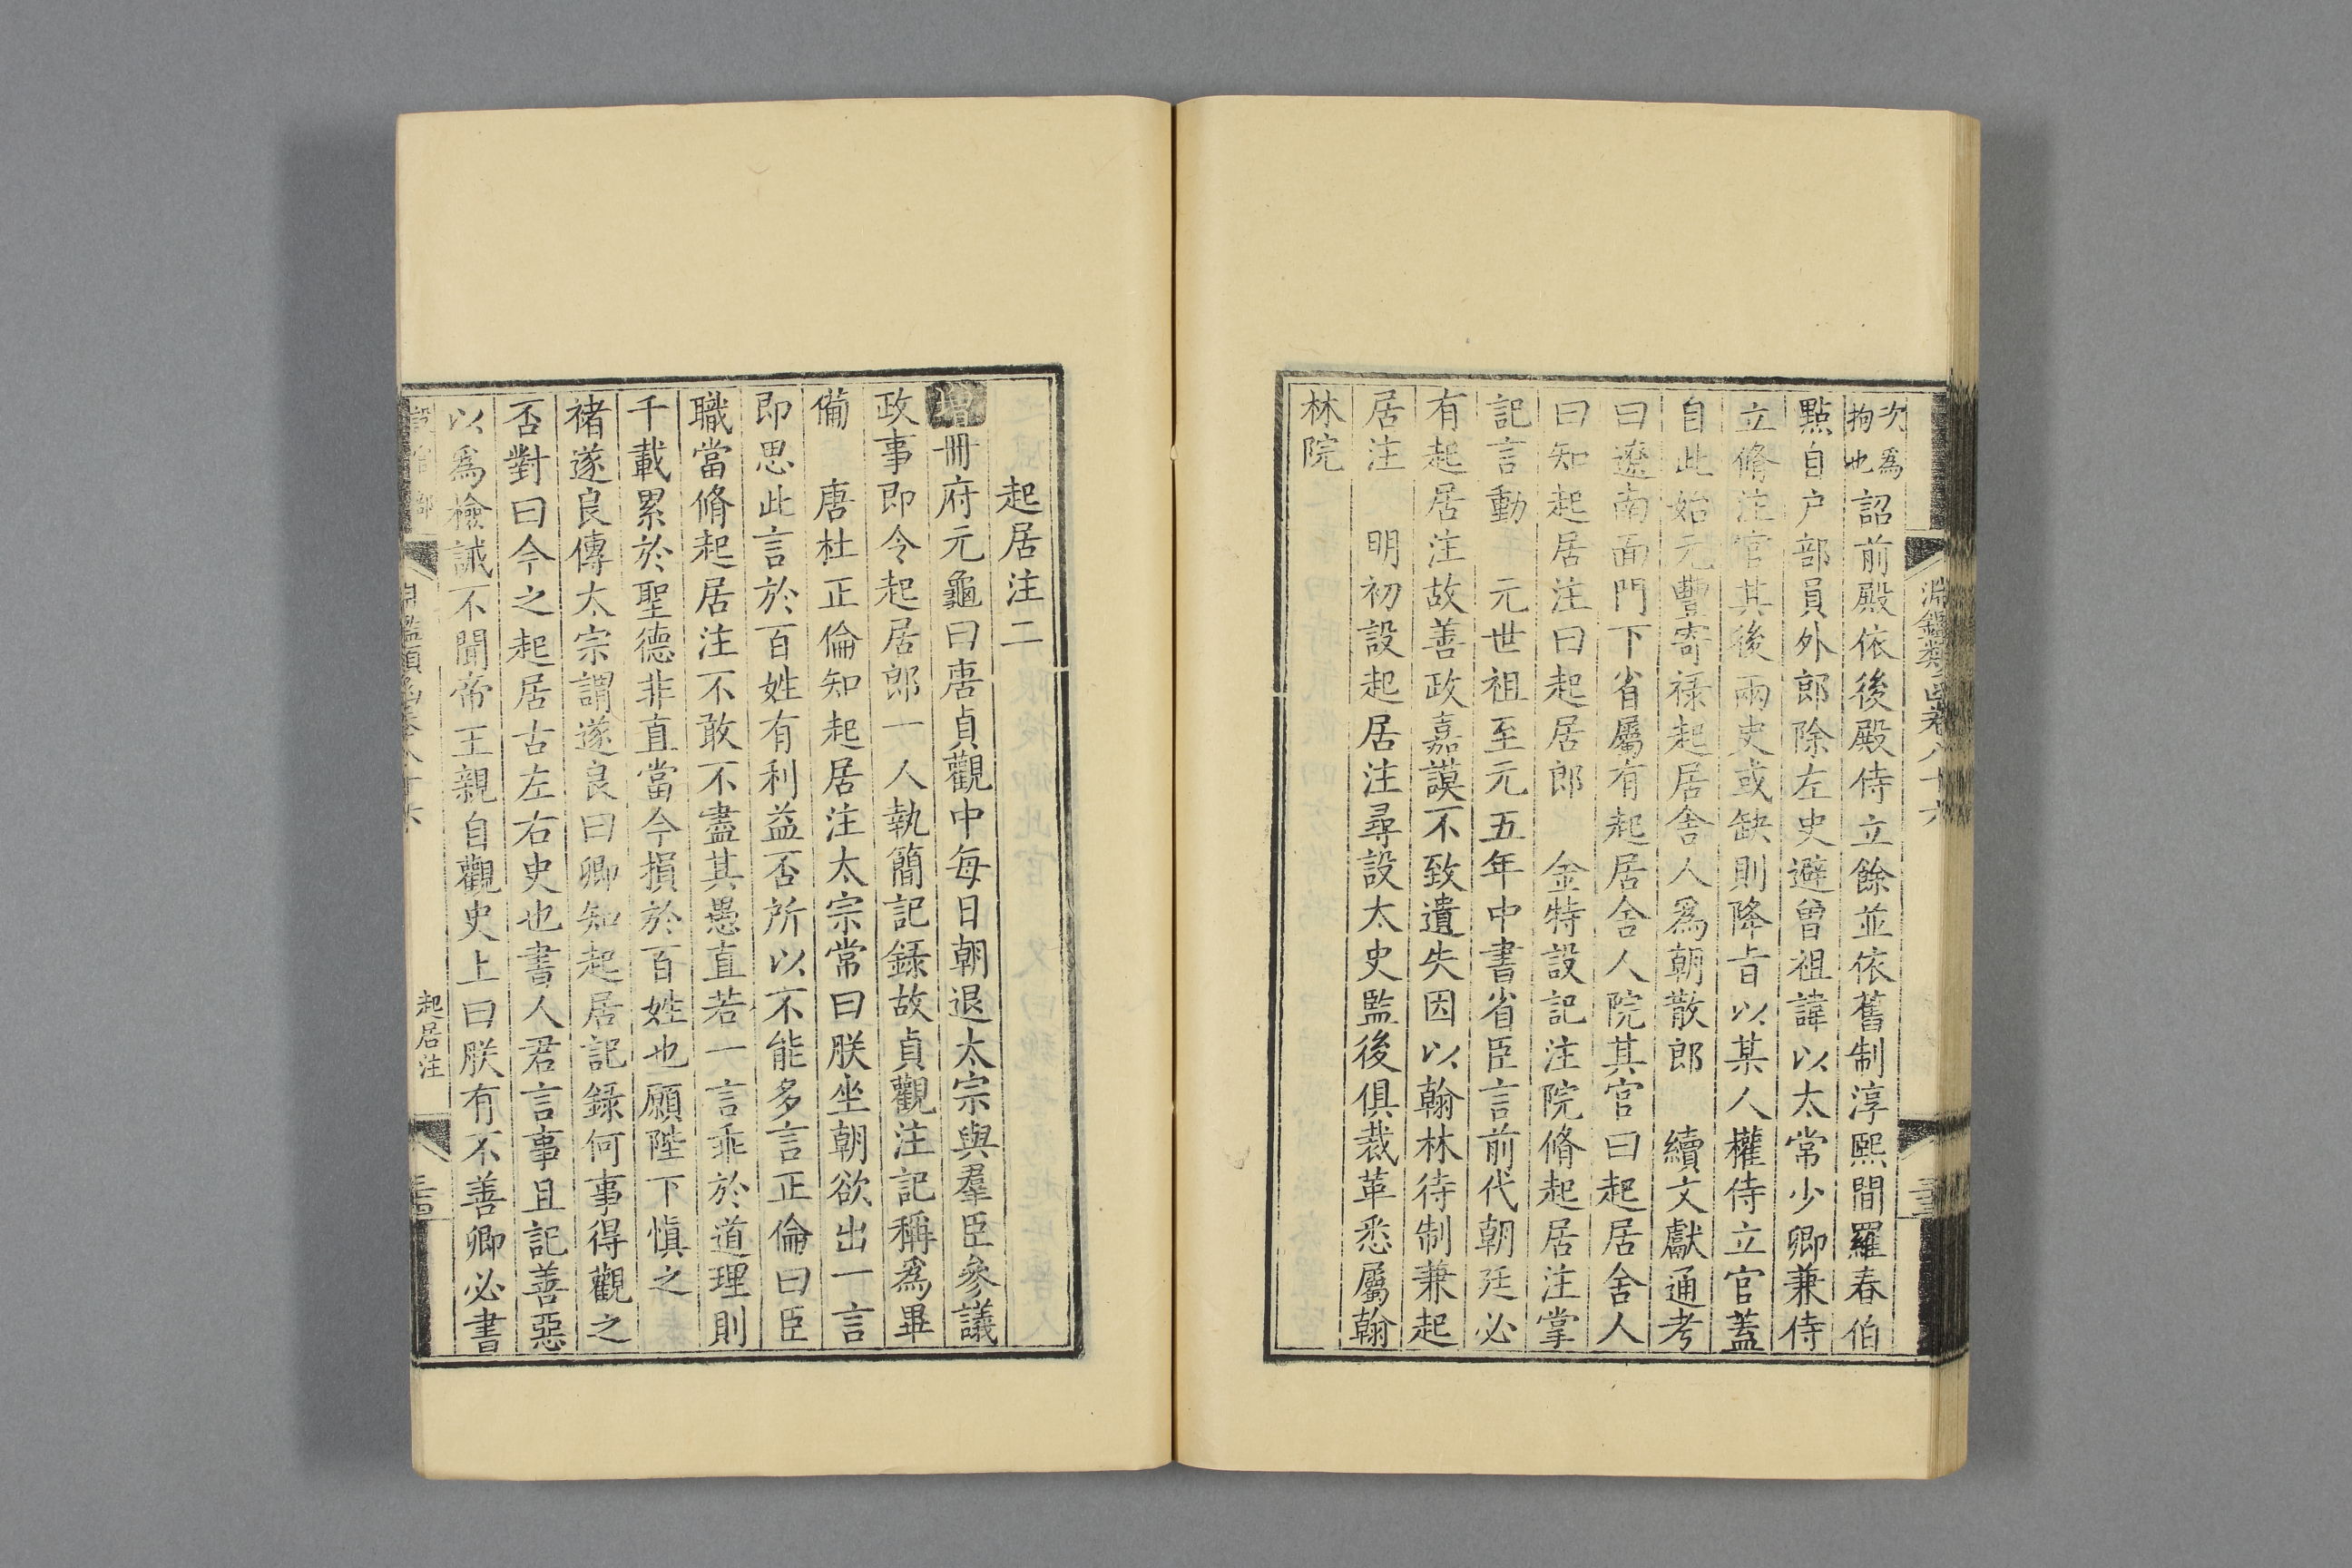 淵鑑類函卷八十六
次爲拘也詔前殿依後殿侍立餘並依舊制淳熙間羅春伯
點自户部員外郎除左史避曾祖諱以太常少卿兼侍
立脩注官其後兩史或缺則降旨以某人權侍立官蓋
自此始元豐寄禄起居舍人爲朝散郎　續文獻通考
曰遼南面門下省屬有起居舍人院其官曰起居舍人
曰知起居注曰起居郎　金特設記注院脩起居注掌
記言動　元世祖至元五年中書省臣言前代朝廷必
有起居注故善政嘉謨不致遺失因以翰林待制兼起
居注　明初設起居注尋設太史監後俱裁革悉屬翰
林院
起居注二
增冊府元龜曰唐貞觀中每日朝退太宗與羣臣參議
政事即令起居郎一人執簡記録故貞觀注記稱爲畢
備　唐杜正倫知起居注太宗常曰朕坐朝欲出一言
即思此言於百姓有利益否所以不能多言正倫曰臣
職當脩起居注不敢不盡其愚直若一言乖於道理則
千載累於聖德非直當今損於百姓也願陛下慎之
褚遂良傳太宗謂遂良曰卿知起居記録何事得觀之
否對曰今之起居古左右史也書人君言事且記善惡
以爲檢誡不聞帝王親自觀史上曰朕有不善卿必書
設官部
淵鑑類函卷八十六
起居注